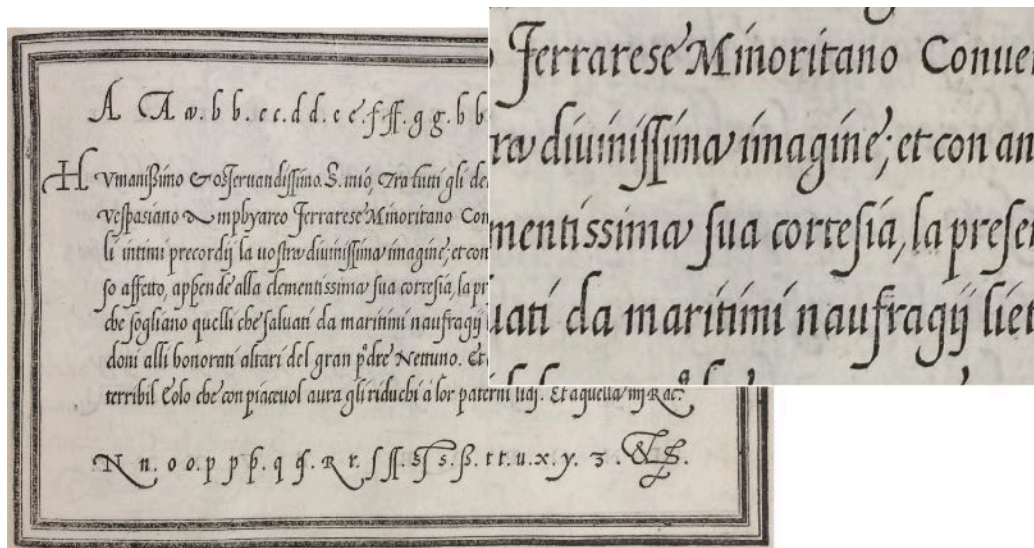 A A a. b b. c c. d d. e e. f ff. g g. h h
Humanißimo & osseruandissimo. S. mio, Tra tutti gli de
Vespasiano Amphyareo Ferrarese Minoritano Con
li intimi precordij la uostra diuinissima imagine; et con
so affetto, appende alla clementissima sua cortesia, la pr
che sogliano quelli che saluati da maritimi naufragij
doni alli honorati altari del gran pᵃdre Nettuno. Et
terribil Eolo che con piaceuol aura gli riduchi a lor paterni lidi. Et a quella mi Racᵃ
N n. o o. p p p. q q. R r. ſ ſſ. ſ s. ß. t t. u. x. y. z. & S.
Ferrarese Minoritano Conue
ra diuinissima imagine; et con an
mentissima sua cortesia, la presen
uati da maritimi naufragij liet